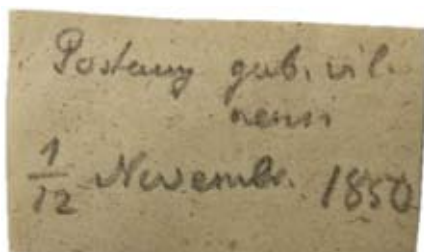 Postawy gub. vil-
nensi
1/12 Novembr. 1850